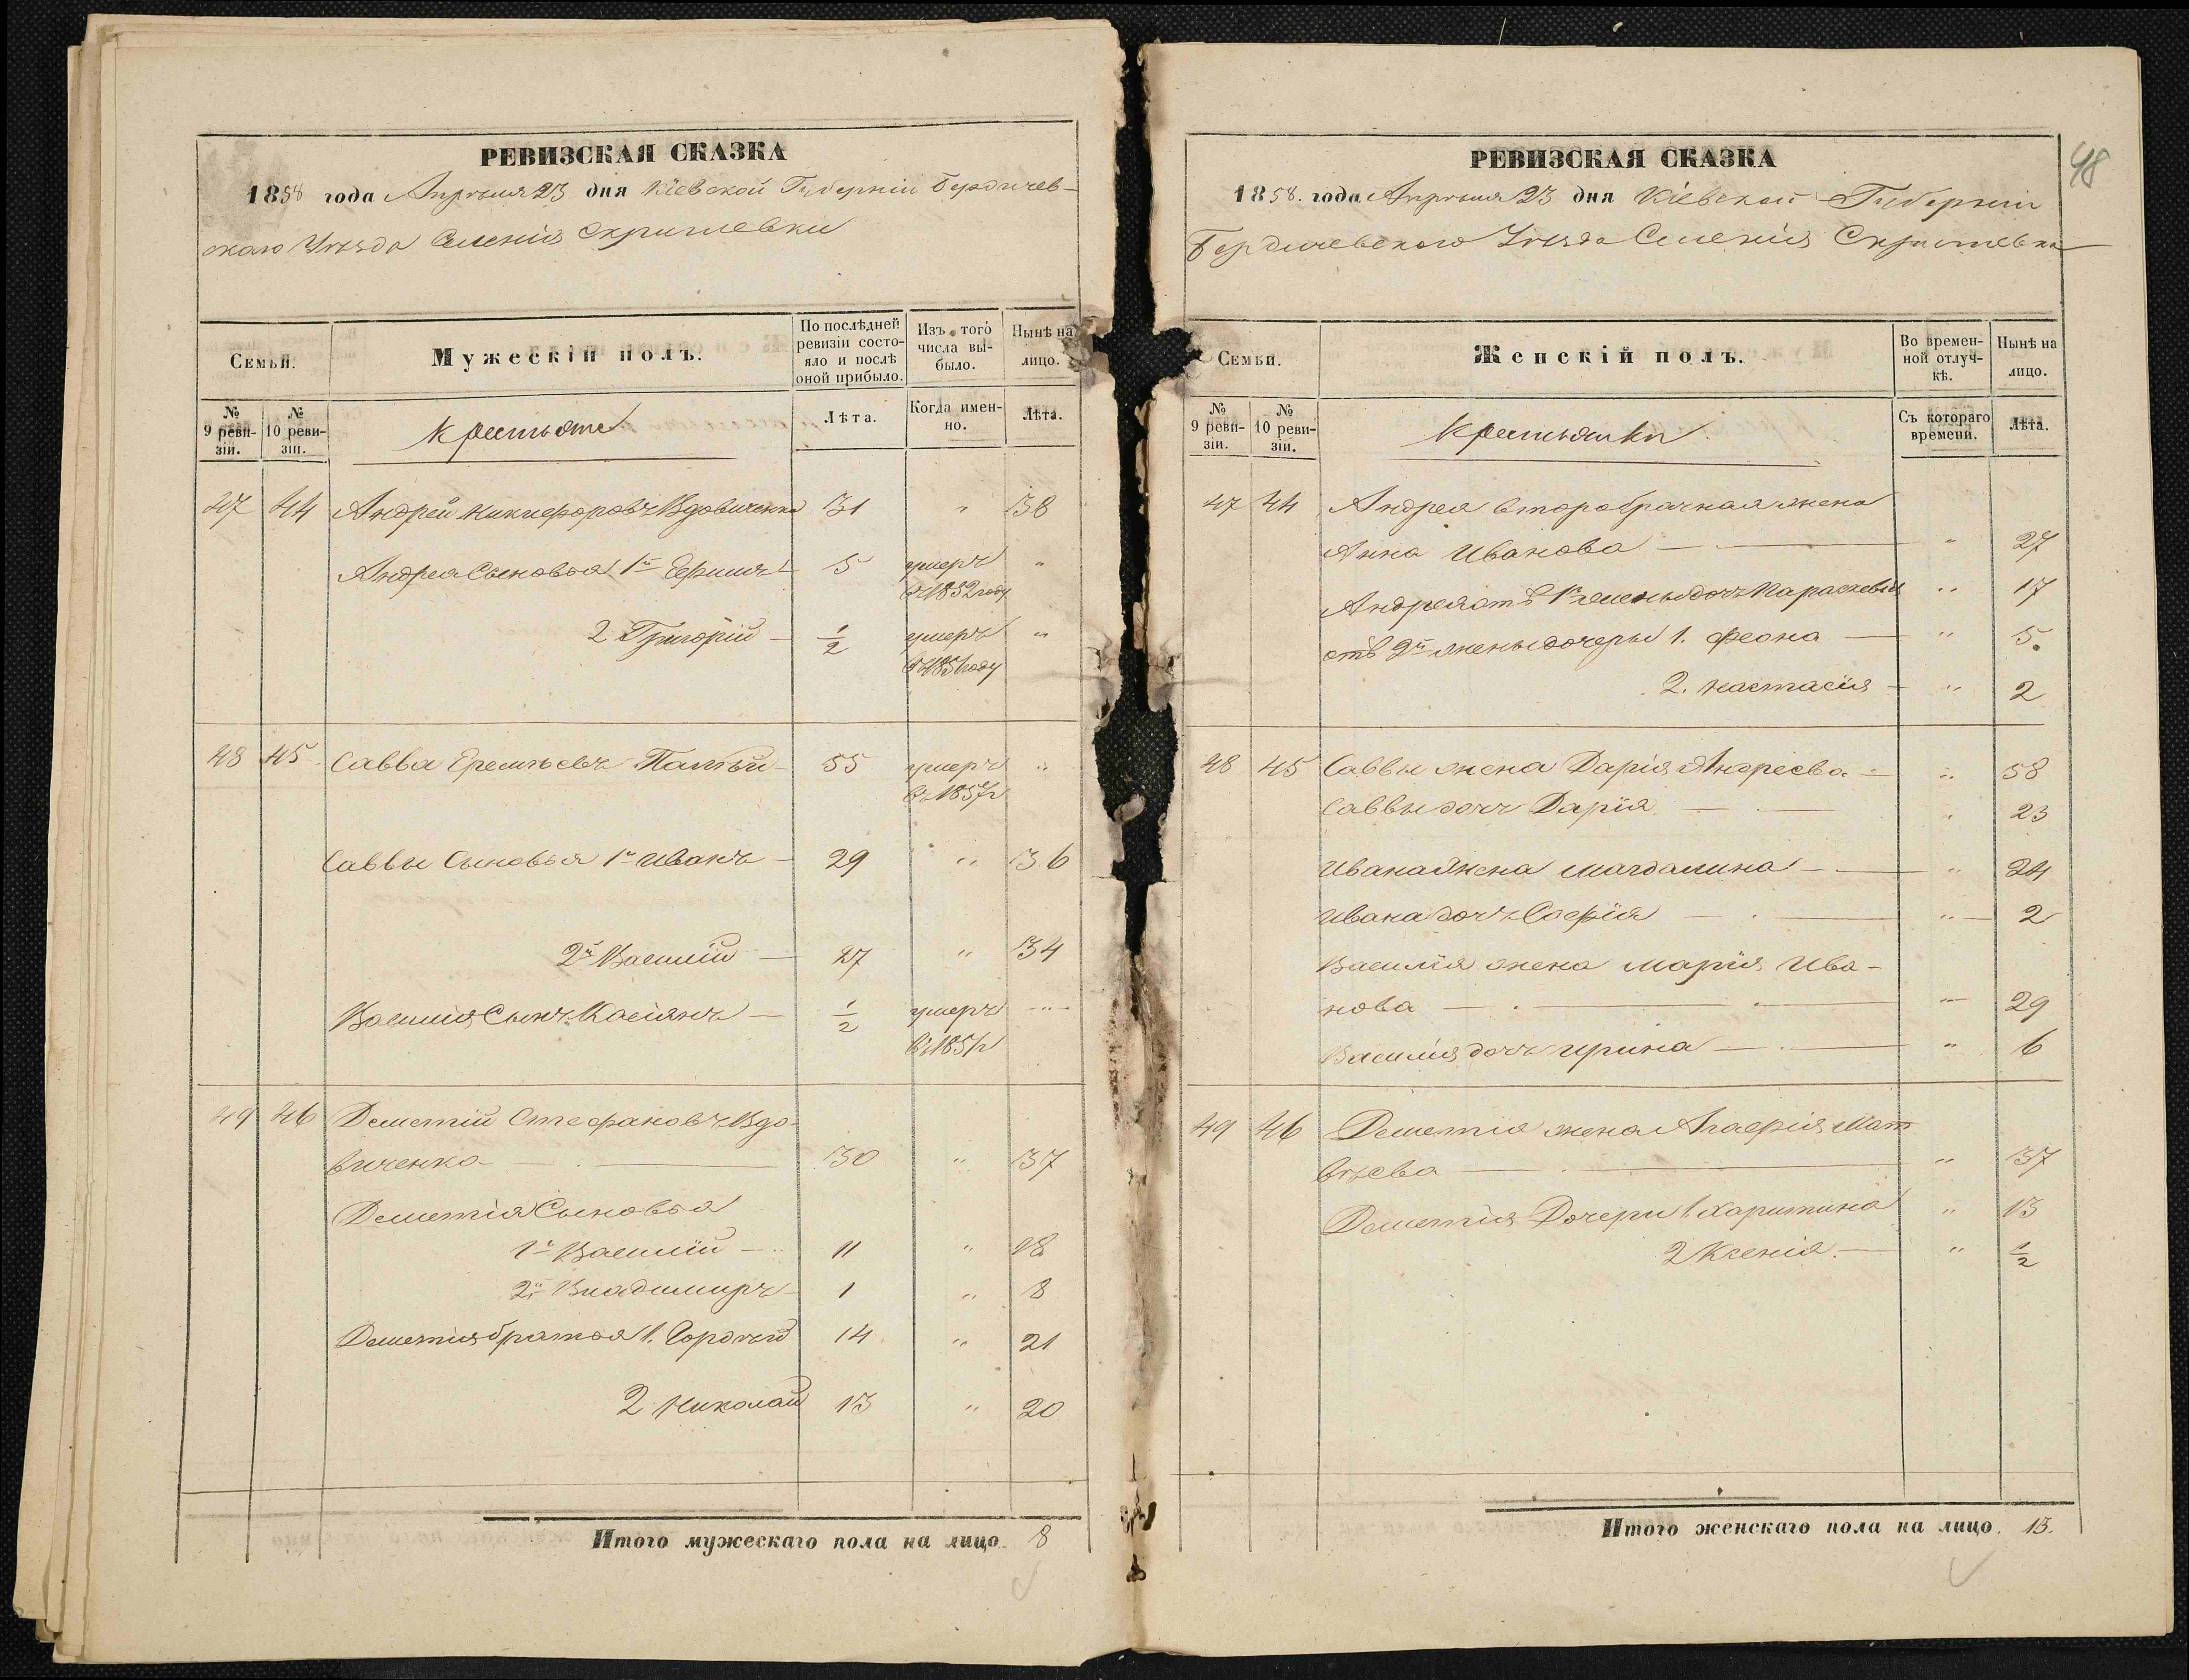 РЕВИЗСКАЯ СКАЗКА
1858 года Апрѣля 23 дня Кіевской Губерніи Бердичев-
скаго Уѣзда Селенія Скригилевки
Семьи.
Мужескій полъ.
По послѣдней ревизіи состо-яло и послѣ оной прибыло.
Изъ того числа вы-было.
Нынѣ на лицо.
№ 9 реви-зіи.
№ 10 реви-зіи.
Крестьяне
Лѣта.
Когда имен-но.
Лѣта.
47 44 Андрей Никифоровъ Вдовиченко 31 " 38
Андрея Сыновья 1й Ефимъ 5 умеръ "
въ 1852 году
2 Григорій - 1/2 умеръ "
въ 1851 году
48 45 Савва Еремѣевъ Палѣй - 55 умеръ "
въ 1857 г
Саввы Сыновья 1й Иванъ - 29 " 36
2й Василій - 27 " 34
Василія Сынъ Касіянъ - 1/2 умеръ "
въ 1851 г
49 46 Дементій Стефановъ Вдо-
виченко - 30 " 37
Дементія Сыновья
1й Василій - 11 " 18
2й Владимиръ - 1 " 8
Дементія братья 1. Гордѣй 14 " 21
2 Николай 13 " 20
Итого мужескаго пола на лицо 8
48
РЕВИЗСКАЯ СКАЗКА
1858. года Апрѣля 23 дня Кіевской Губерніи
Бердичевского Уѣзда Селенія Скригилевки
Семьи.
Женскій полъ.
Во времен-ной отлуч-кѣ.
Нынѣ на лицо.
№ 9 реви-зіи.
№ 10 реви-зіи.
Крестьянки
Съ котораго времени.
Лѣта.
47 44 Андрея второбрачная жена
Анна Иванова - " 27
Андрея отъ 1й жены дочь Параскевія " 17
отъ 2й жены дочеры 1. Феона - " 5.
2. Настасія - " 2
48 45 Саввы жена Дарія Андреева - " 58
Саввы дочь Дарія - " 23
Ивана Жена Магдалина - " 24
Ивана дочь Софія - " 2
Василія жена Марія Ива-
нова - " 29
Василія дочь Ирина - " 6
49 46 Дементія жена Агафія Мат
вѣева - " 37
Дементія Дочери 1. Харитина " 13
2 Ксенія. - " 1/2
Итого женскаго пола на лицо. 13.